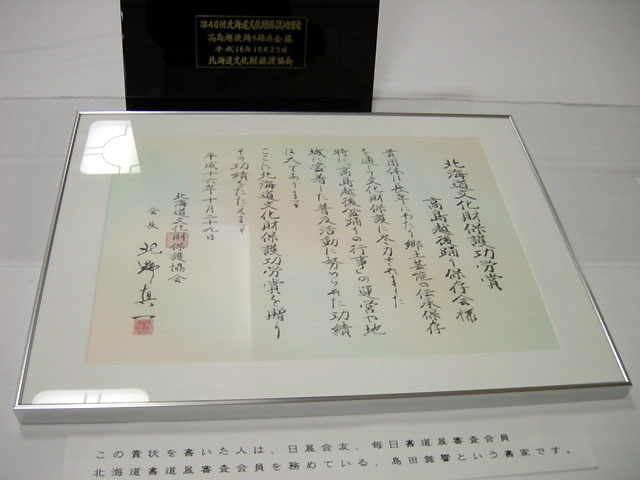 第40回北海道文化財保護功労者
高島越後踊り保存会様
平成16年10月29日
北海道文化財保護協会
北海道文化財保護功労賞
高島越後踊り保存会様
貴団体は長年にわたり郷土芸能の伝承保存
を通し文化財保護に尽力されました
特に「高島越後盆踊りの行事」の運営や地
域に密着した普及活動に努められた功績
は大であります
ここに北海道文化財保護功労賞を贈り
その功績をたたえます
平成十六年十月二十九日
北海道文化財保護協会
会長
真一
この賞状を書いた人は、日展会友、毎日書道展審査会員
北海道書道展審査会員を務めている、島田無響という書家です。